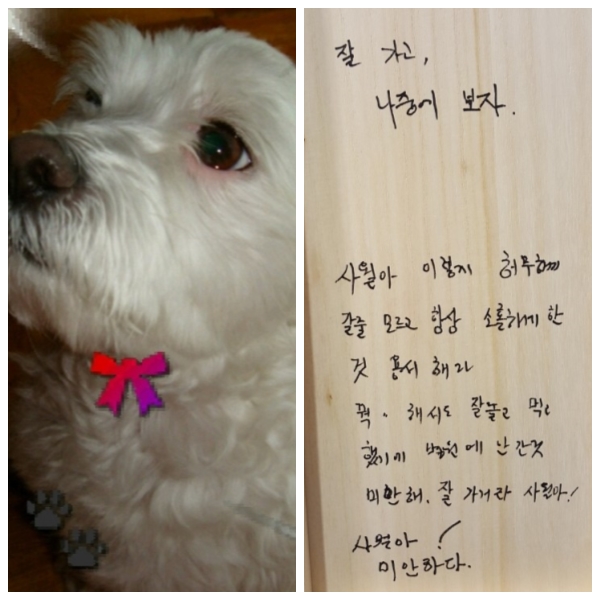 잘 가고,
나중에 보자.
사월아 이렇게 허무하게
갈줄 모르고 항상 소홀하게 한
것 용서 해라
해서도 잘놀고 먹고
했기에 병원에 난 간것
미안해. 잘 가거라 사월아!
사월아!
미안하다.